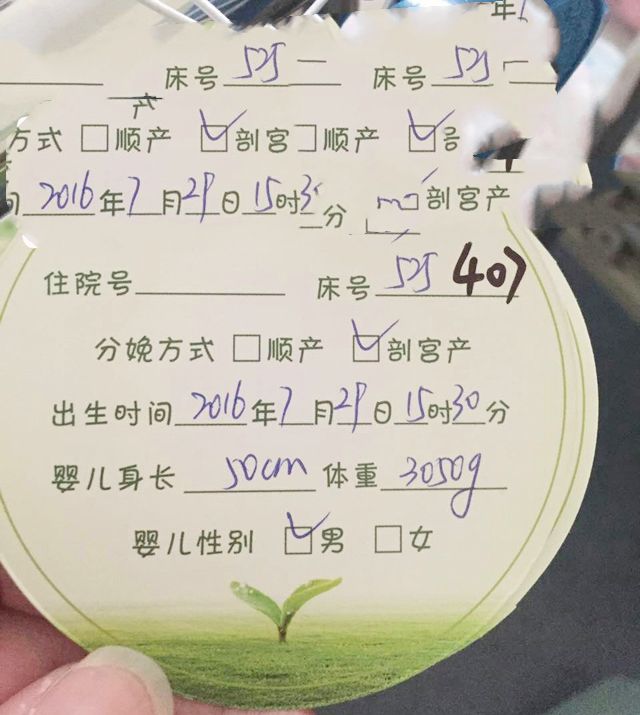 年
床号 525 床号 525
产
方式 □顺产 ☑剖宫 □顺产 ☑
2016年7月29日15时3 分 剖宫产
住院号 床号 525 (40)
分娩方式 □顺产 ☑剖宫产
出生时间 2016年7月29日15时30分
婴儿身长 50cm 体重 3050g
婴儿性别 ☑男 □女